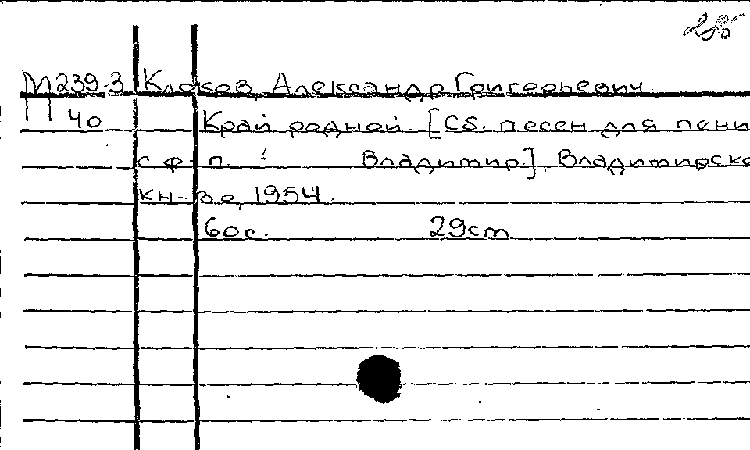 285
М239-3 Клоков, Александр Григорьевич
П 40 Край родной. [Сб. песен для пени
с ф-п. : Владимир.] Владимирско
кн-ве, 1954.
60с. 29cm